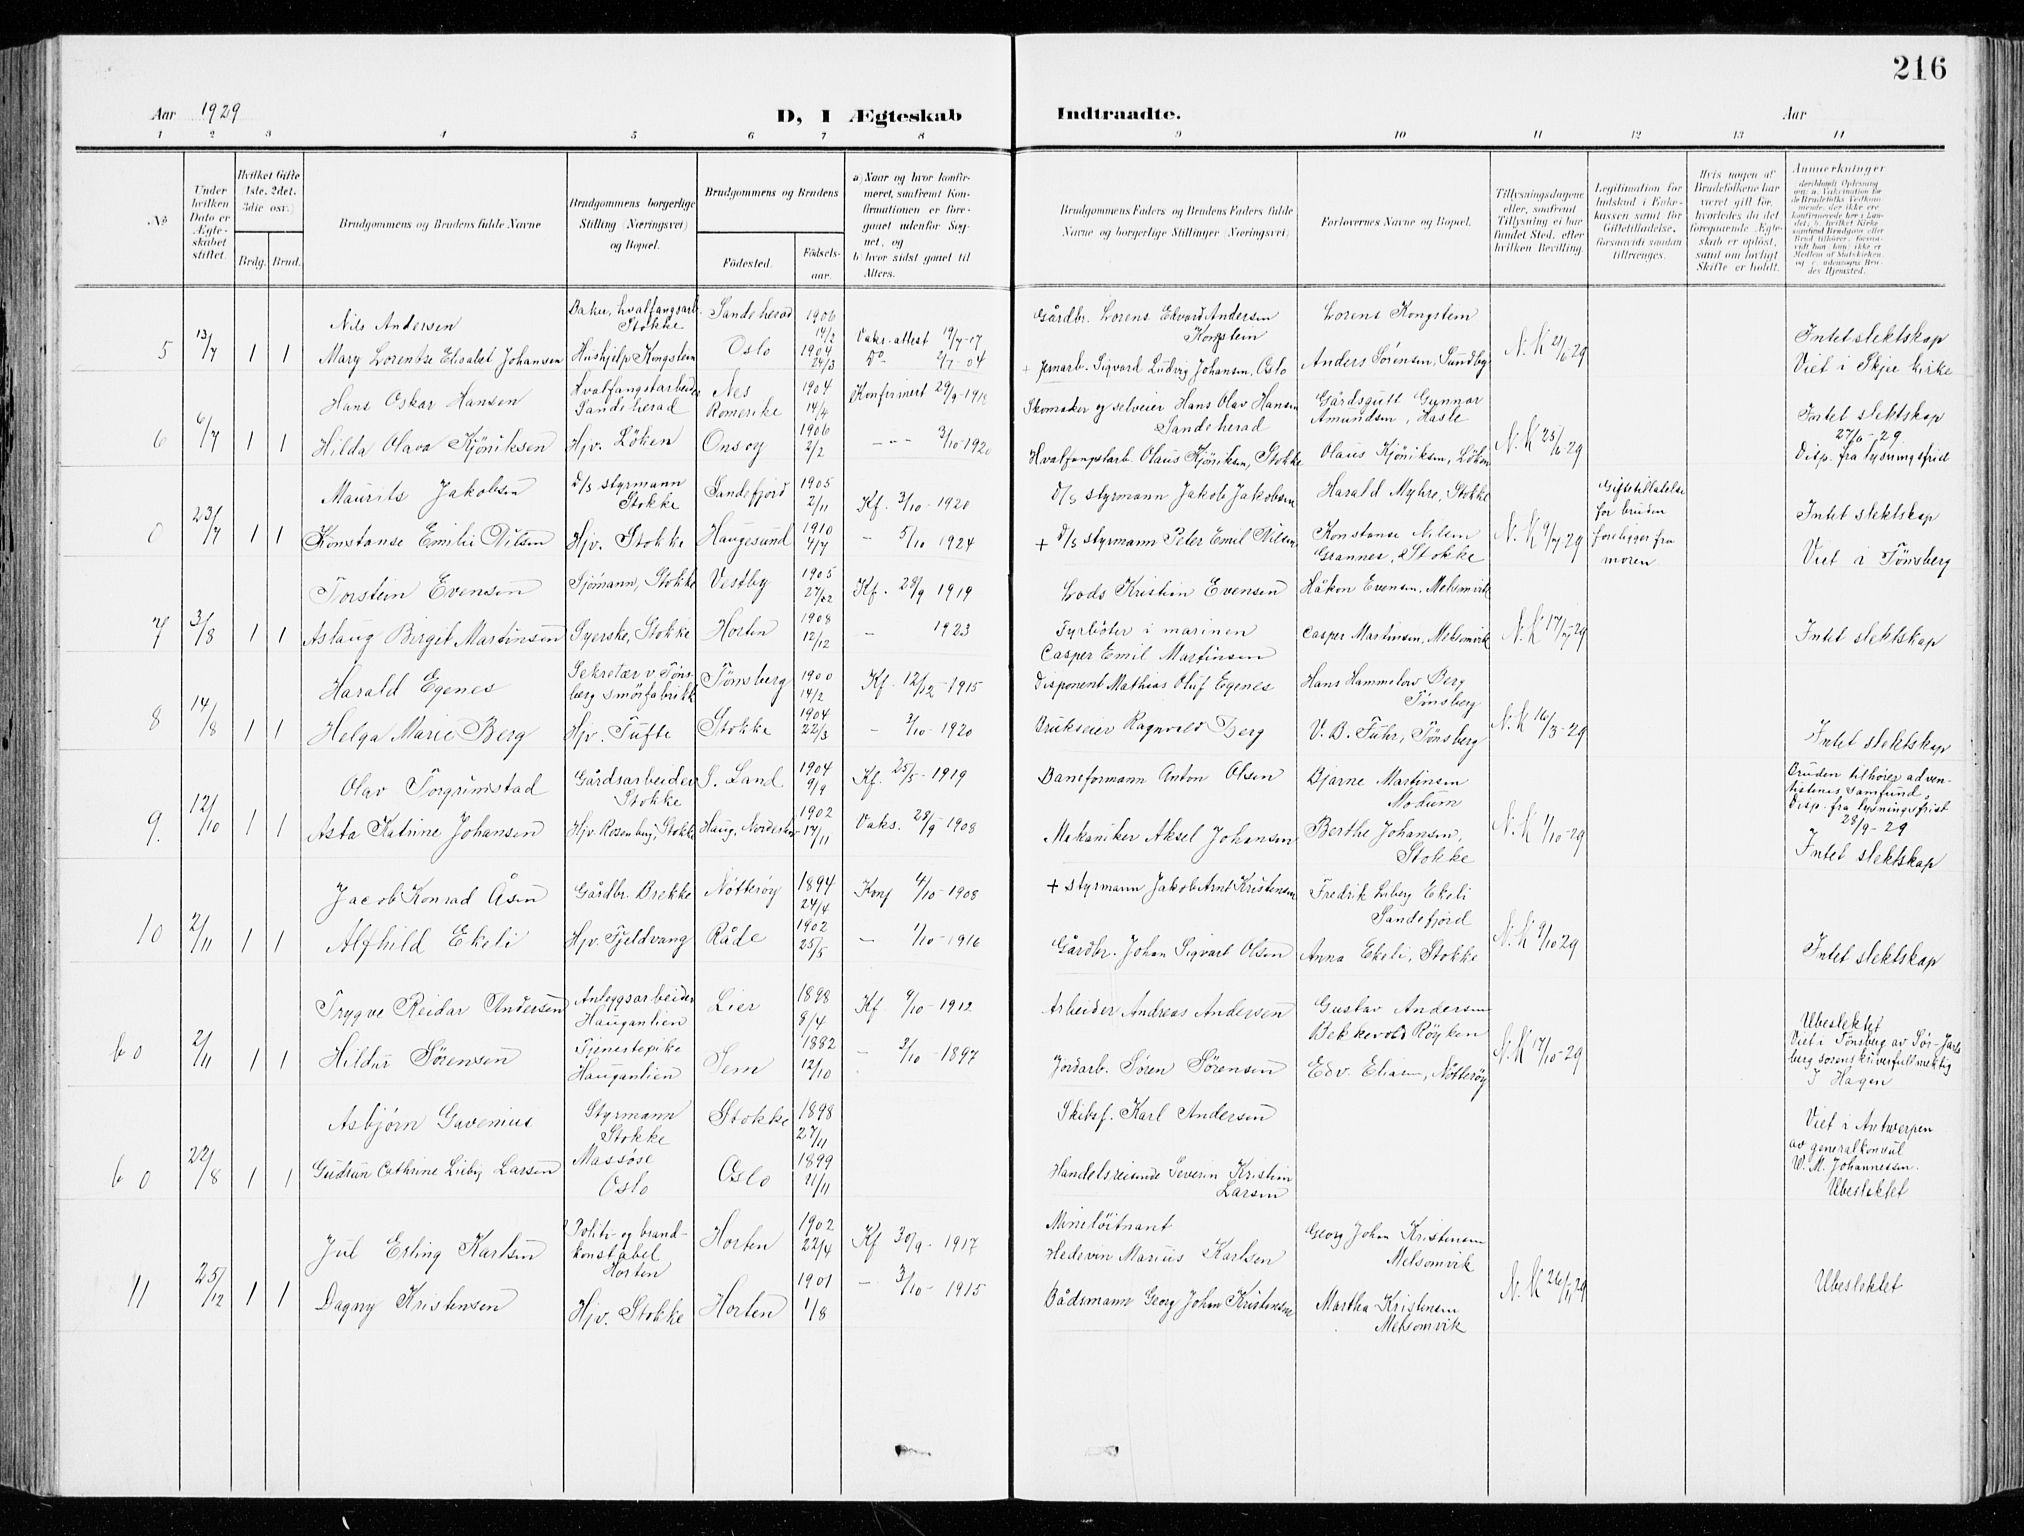 216
Aar 1929
D, I Ægteskab Indtraadte.
Aar
1 2 3 4 5 6 7 8 9 10 11 12 13 14
No
Under hvilken Dato er Ægteskabet stiftet.
Hvilket Gifte 1ste, 2det, 3die osv.
Brdg. Brud.
Brudgommens og Brudens fulde Navne
Brudgommens borgerlige Stilling (Næringsvei) og Bopæl.
Brudgommens og Brudens
Fødested. Fødselsaar.
a) Naar og hvor konfirmeret, saafremt Konfirmationen er foregaaet udenfor Sognet, og
b) hvor sidst gaaet til Alters.
Brudgommens Faders og Brudens Faders fulde Navne og borgerlige Stillinger (Næringsvei)
Forlovernes Navne og Bopæl.
Tillysningsdagene eller, saafremt Tillysning ei har fundet Sted, efter hvilken Bevilling.
Legitimation for Indskud i Enkekassen samt for Giftetilladelse, forsaavidt saadan tiltrænges.
Hvis nogen af Brudefolkene har været gift før, hvorledes da det foregaaende Ægteskab er opløst, samt om lovligt Skifte er holdt.
Anmerkninger
5 13/7 1 1
Nils Andersen
Baker, hvalfangsarb. Stokke
Sandeherad
1906 14/2
Vaks. attest 19/7-17
Gårdbr. Lorens Edvard Andersen Kongstein
Lorens Kongstein
N.K 21/6 29
Intet slektskap
Viet i Skjee kirke
Mary Lorentse Elisabet Johansen
Hushjelp Kongstein
Oslo
1904 24/3
Do 2/7-04
+ Jernarb. Sigvard Ludvig Johansen, Oslo
Anders Sörensen, Sundby
6 6/7 1 1
Hans Oskar Hansen
Hvalfangstarbeider Sandeherad
Nes Romerike
1904 14/4
Konfirmert 29/9-1918
Skomaker og selveier Hans Olav Hansen Sandeherad
Gårdsgutt Gunnar Amundsen, Hasle
N.K 25/6 29
Intet slektskap
27/6-29
Disp. fra lysningsfrist
Hilda Olava Kjöniksen
Hjv. Löken
Onsøy
1906 2/2
- " - 3/10-1920
Hvalfangstarb. Olaus Kjöniksen, Stokke
Olaus Kjöniksen, Löken
0 23/7 1 1
Maurits Jakobsen
d/s styrmann Stokke
Sandefjord
1905 2/11
Kf. 3/10-1920
d/s styrmann Jakob Jakobsen
Harald Myhre, Stokke
N.K 9/7 29
Giftetillatelse for bruden foreligger fra moren
Intet slektskap
Viet i Tönsberg
Konstanse Emilie Nilsen
Hjv. Stokke
Haugesund
1910 4/7
- 5/10 1924
+ d/s styrmann Peter Emil Nilsen
Konstanse Nilsen Grannes, Stokke
7 3/8 1 1
Torstein Evensen
Sjömann, Stokke
Vestby
1905 27/12
Kf. 28/9 1919
Lods Kristian Evensen
Håkon Evensen, Melsomvik
N.K 17/7 29
Intet slektskap
Aslaug Birgit Martinsen
Syerske, Stokke
Horten
1908 12/12
- 1923
Fyrböter i marinen Casper Emil Martinsen
Casper Martinsen, Melsomvik
8 14/8 1 1
Harald Egenes
Sekretær v. Tönsberg smörfabrikk
Tönsberg
1900 14/2
Kf. 12/12-1915
Disponent Mathias Oluf Egenes
Hans Hammelow Berg Tönsberg
N.K 16/3-29
Intet slektskap
Helga Marie Berg
Hjv. Tufte
Stokke
1904 22/3
- 3/10-1920
Brukseier Ragnvald Berg
V. B. Fuhr, Tönsberg
9. 12/10 1 1
Olav Torgrimstad
Gårdsarbeider Stokke
S. Land
1904 9/9
Kf. 25/5-1919
Baneformann Anton Olsen
Bjarne Martinsen Modum
N.K 1/10-29
Bruden tilhører adventistenes samfund.
Disp. fra lysningsfrist 28/9-29
Intet slektskap
Asta Katrine Johansen
Hjv. Rosenberg, Stokke
1902 17/11
Vaks. 28/9 1908
Mekaniker Aksel Johansen
Berthe Johansen, Stokke
10 2/11 1 1
Jacob Konrad Åsen
Gårdbr. Brekke
Nötteröy
1894 24/4
Konf 4/10-1908
+ styrmann Jakob Arnt Kristensen
Fredrik Liberg Ekeli Sandefjord
N.K 9/10 29
Intet slektskap
Alfhild Ekeli
Hjv. Fjeldvang
Råde
1902 25/5
- 1/10-1916
Gårdbr. Johan Sigvart Olsen
Anna Ekeli, Stokke
b 0 2/11 1 1
Trygve Reidar Andersen
Anleggsarbeider Hauganlien
Lier
1898 8/4
Kf. 9/10-1912
Arbeider Andreas Andersen
Gustav Andersen Bekkevold Röyken
N.K 17/10-29
Ubeslektet
Viet i Tönsberg av Sör-Jarlsberg sorenskriverfullmektig
J Hagen
Hildur Sørensen
Tjenestepike Hauganlien
Sem
1882 12/10
- 3/10-1897
Jordarb. Sören Sörensen
Edv. Eliasen, Nötteröy
b 0 22/8 1 1
Asbjørn Gavenius
Styrmann Stokke
Stokke
1898 27/11
Skibsf. Karl Andersen
Viet i Antwerpen av generalkonsul W. M. Johannessen.
Ubeslektet
Gudrun Cathrine Liebig Larsen
Massøse Oslo
Oslo
1899 21/11
Handelsreisende Severin Kristian Larsen
11 25/12 1 1
Jul Erling Karlsen
Politi- og brandkonstabel Horten
Horten
1902 22/4
Kf 30/9-1917
Mineløitnant Hedevin Marius Karlsen
Georg Johan Kristensen Melsomvik
N.K 26/11 29
Ubeslektet
Dagny Kristensen
Hjv. Stokke
Horten
1901 1/8
- 3/10-1915
Bådsmann Georg Johan Kristensen
Martha Kristensen Melsomvik